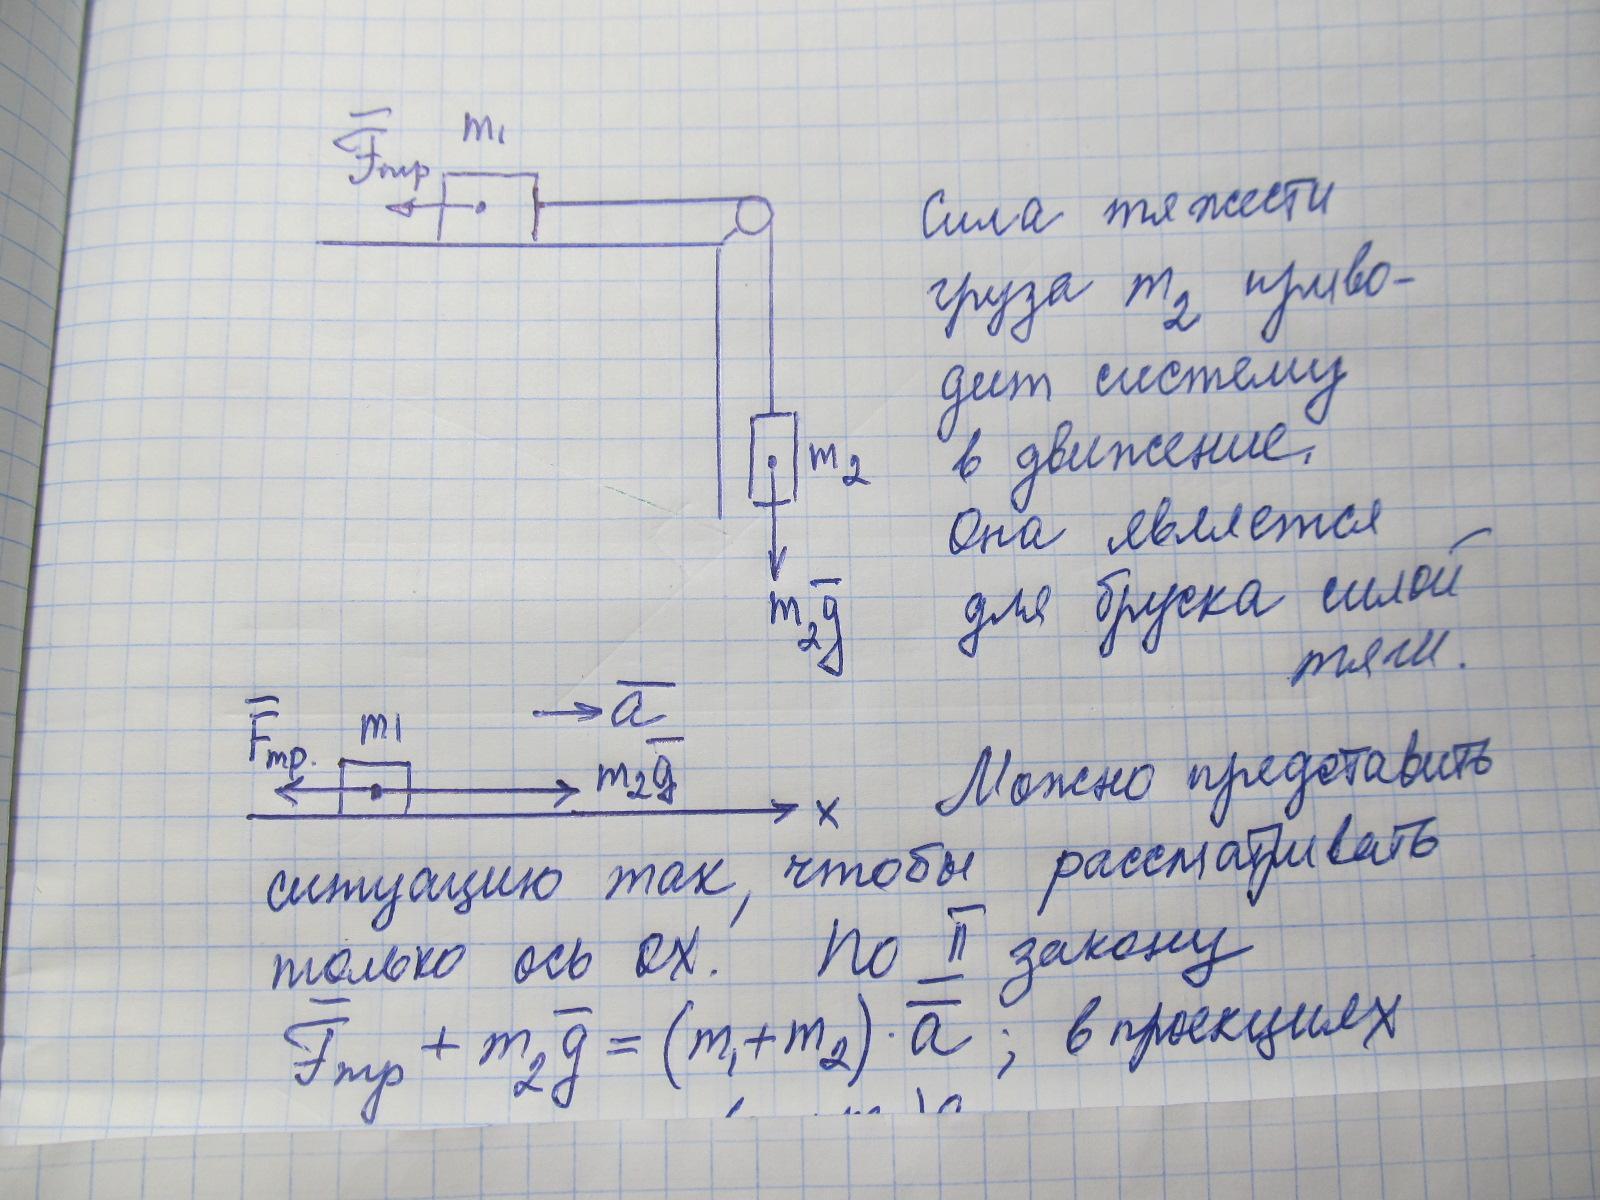 F̅тр m₁
Сила тяжести
груза m₂ приво-
дит систему
в движение.
m₂
Она является
для бруска силой
тяги.
m₂g̅
a̅
F̅тр. m₁
m₂g̅
x
Можно представить
ситуацию так, чтобы рассматривать
только ось ОХ. По II закону
F̅тр + m₂g̅ = (m₁+m₂)·a̅ ; в проекциях